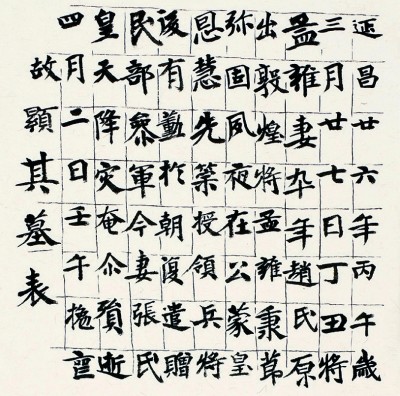 延昌廿六年丙午歲
三月廿七日丁丑將
孟雍妻年趙氏原
出敦煌將孟雍秉節
弥固夙夜在公蒙皇
恩慧先策授領兵將
後有勳於朝復遣贈
民部叅軍今妻張氏
皇天降灾奄尒殞逝
四月二日壬午
故顯其墓表